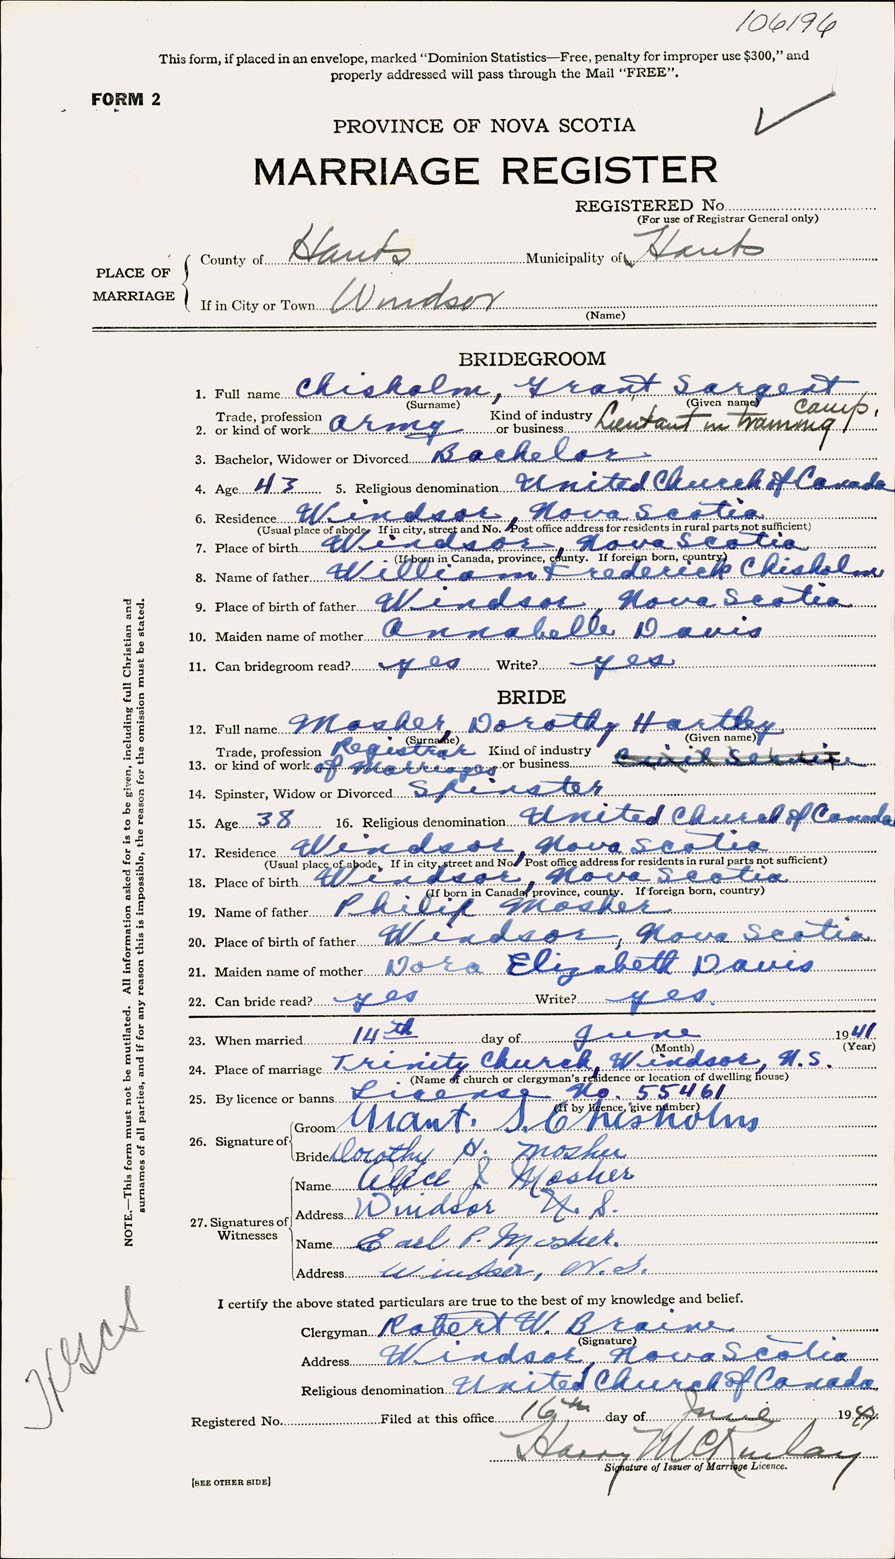 106196
This form, if placed in an envelope, marked "Dominion Statistics—Free, penalty for improper use $300," and
properly addressed will pass through the Mail "FREE".
FORM 2
PROVINCE OF NOVA SCOTIA
MARRIAGE REGISTER
REGISTERED No.
(For use of Registrar General only)
PLACE OF MARRIAGE
County of Hants Municipality of Hants
If in City or Town Windsor
(Name)
BRIDEGROOM
1. Full name Chisholm, Grant Sargent
(Surname) (Given name)
2. Trade, profession or kind of work Army Kind of industry or business Lieutant in training camp.
3. Bachelor, Widower or Divorced Bachelor
4. Age 43 5. Religious denomination United Church of Canada
6. Residence Windsor, Nova Scotia
(Usual place of abode. If in city, street and No. Post office address for residents in rural parts not sufficient)
7. Place of birth Windsor, Nova Scotia
(If born in Canada, province, county. If foreign born, country)
8. Name of father William Frederick Chisholm
9. Place of birth of father Windsor, Nova Scotia
10. Maiden name of mother Annabelle Davis
11. Can bridegroom read? yes Write? yes
BRIDE
12. Full name Mosher, Dorothy Hartley
(Surname) (Given name)
13. Trade, profession or kind of work Registrar of Marriages Kind of industry or business Civil Service
14. Spinster, Widow or Divorced Spinster
15. Age 38 16. Religious denomination United Church of Canada
17. Residence Windsor, Nova Scotia
(Usual place of abode. If in city, street and No. Post office address for residents in rural parts not sufficient)
18. Place of birth Windsor, Nova Scotia
(If born in Canada, province, county. If foreign born, country)
19. Name of father Philip Mosher
20. Place of birth of father Windsor, Nova Scotia
21. Maiden name of mother Dora Elizabeth Davis
22. Can bride read? yes Write? yes.
23. When married 14th day of June 1941
(Month) (Year)
24. Place of marriage Trinity Church, Windsor, N.S.
(Name of church or clergyman's residence or location of dwelling house)
25. By licence or banns License No. 55461
(If by licence, give number)
26. Signature of
Groom Grant. S. Chisholm
Bride Dorothy H. Mosher
27. Signatures of Witnesses
Name Alice J Mosher
Address Windsor N. S.
Name Earl P. Mosher.
Address Windsor, N.S.
I certify the above stated particulars are true to the best of my knowledge and belief.
Clergyman Robert W. Braine
(Signature)
Address Windsor, Nova Scotia
Religious denomination United Church of Canada
Registered No. Filed at this office 16th day of June 1941
Harry McKinlay
Signature of Issuer of Marriage Licence.
[SEE OTHER SIDE]
NOTE.—This form must not be mutilated. All information asked for is to be given, including full Christian and
surnames of all parties, and if for any reason this is impossible, the reason for the omission must be stated.